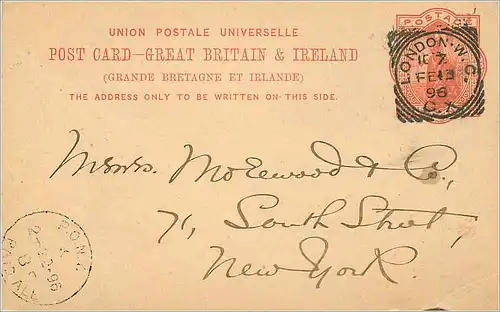 UNION POSTALE UNIVERSELLE
POST CARD—GREAT BRITAIN & IRELAND
(GRANDE BRETAGNE ET IRLANDE)
THE ADDRESS ONLY TO BE WRITTEN ON THIS SIDE.
POSTAGE
LONDON·W.C.
FE 13
96
C.X
Messrs. Morewood & Co.,
71, South Street,
New York.
P.O.N.Y.
96
PAID ALL